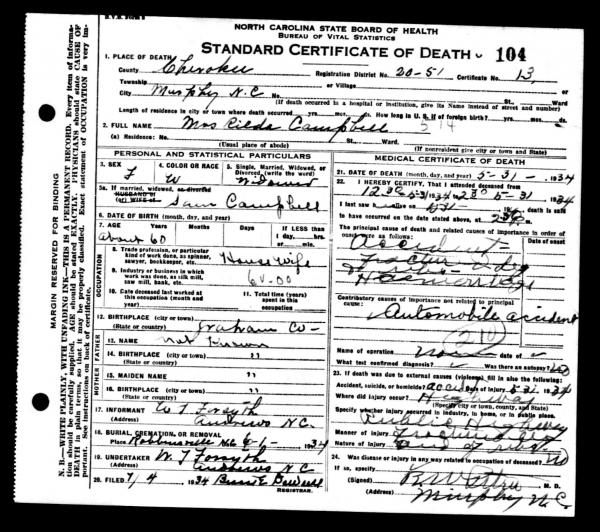 NORTH CAROLINA STATE BOARD OF HEALTH
BUREAU OF VITAL STATISTICS
STANDARD CERTIFICATE OF DEATH 104
1. PLACE OF DEATH
County Cherokee Registration District No. 20-51 Certificate No. 13
Township or Village
City Murphy N.C No. St., Ward
(If death occurred in a hospital or institution, give its Name instead of street and number)
Length of residence in city or town where death occurred yrs. mos. ds. How long in U. S. if of foreign birth? yrs. mos. ds.
2. FULL NAME Mrs Rilda Campbell 514
(a) Residence: No. St. Ward
(Usual place of abode) (If nonresident give city or town and State)
PERSONAL AND STATISTICAL PARTICULARS
3. SEX F 4. COLOR OR RACE W 5. Single, Married, Widowed, or Divorced, (write the word) Widowed
5a. If married, widowed, or divorced
HUSBAND of
(or) WIFE of Sam Campbell
6. DATE OF BIRTH (month, day, and year)
7. AGE Years Months Days If LESS than
About 60 1 day, hrs. or min.
OCCUPATION
8. Trade, profession, or particular kind of work done, as spinner, sawyer, bookkeeper, etc. House wife
9. Industry or business in which work was done, as silk mill, saw mill, bank, etc. 6V.00
10. Date deceased last worked at this occupation (month and year) 11. Total time (years) spent in this occupation
12. BIRTHPLACE (city or town) Graham Co-
(State or country)
FATHER
13. NAME Not Known
14. BIRTHPLACE (city or town) "
(State or country)
MOTHER
15. MAIDEN NAME "
16. BIRTHPLACE (city or town) "
(State or country)
17. INFORMANT W T Forsyth
(Address) Andrews N.C.
18. BURIAL, CREMATION, OR REMOVAL
Place Robbinsville N.C. 6-1- 1934
19. UNDERTAKER W. T Forsyth
(Address) Andrews N C
20. FILED 7/4 1934
REGISTRAR.
MEDICAL CERTIFICATE OF DEATH
21. DATE OF DEATH (month, day, and year) 5-31- 1934
22. I HEREBY CERTIFY, That I attended deceased
I last saw h alive on 5/31 death is said
to have occurred on the date stated above, at
The principal cause of death and related causes of importance in order of onset were as follows: Date of onset
Accident-
Contributory causes of importance not related to principal cause:
Automobile accident
210
Name of operation none Date of
What test confirmed diagnosis? Was there an autopsy? no
23. If death was due to external causes (violence) fill in also the following:
Accident, suicide, or homicide? accident 5-31 1934
Where did injury occur? Highway
(Specify city or town, county, and State)
Specify whether injury occurred in industry, in home, or in public place.
Public Highway
Manner of injury
Nature of injury
24. Was disease or injury in any way related to occupation of deceased? no
If so, specify
(Signed) M. D.
Murphy N.C.
MARGIN RESERVED FOR BINDING
N. B.—WRITE PLAINLY, WITH UNFADING INK—THIS IS A PERMANENT RECORD. Every item of information should be carefully supplied. AGE should be stated EXACTLY. PHYSICIANS should state CAUSE OF DEATH in plain terms, so that it may be properly classified. Exact statement of OCCUPATION is very important. See instructions on back of certificate.